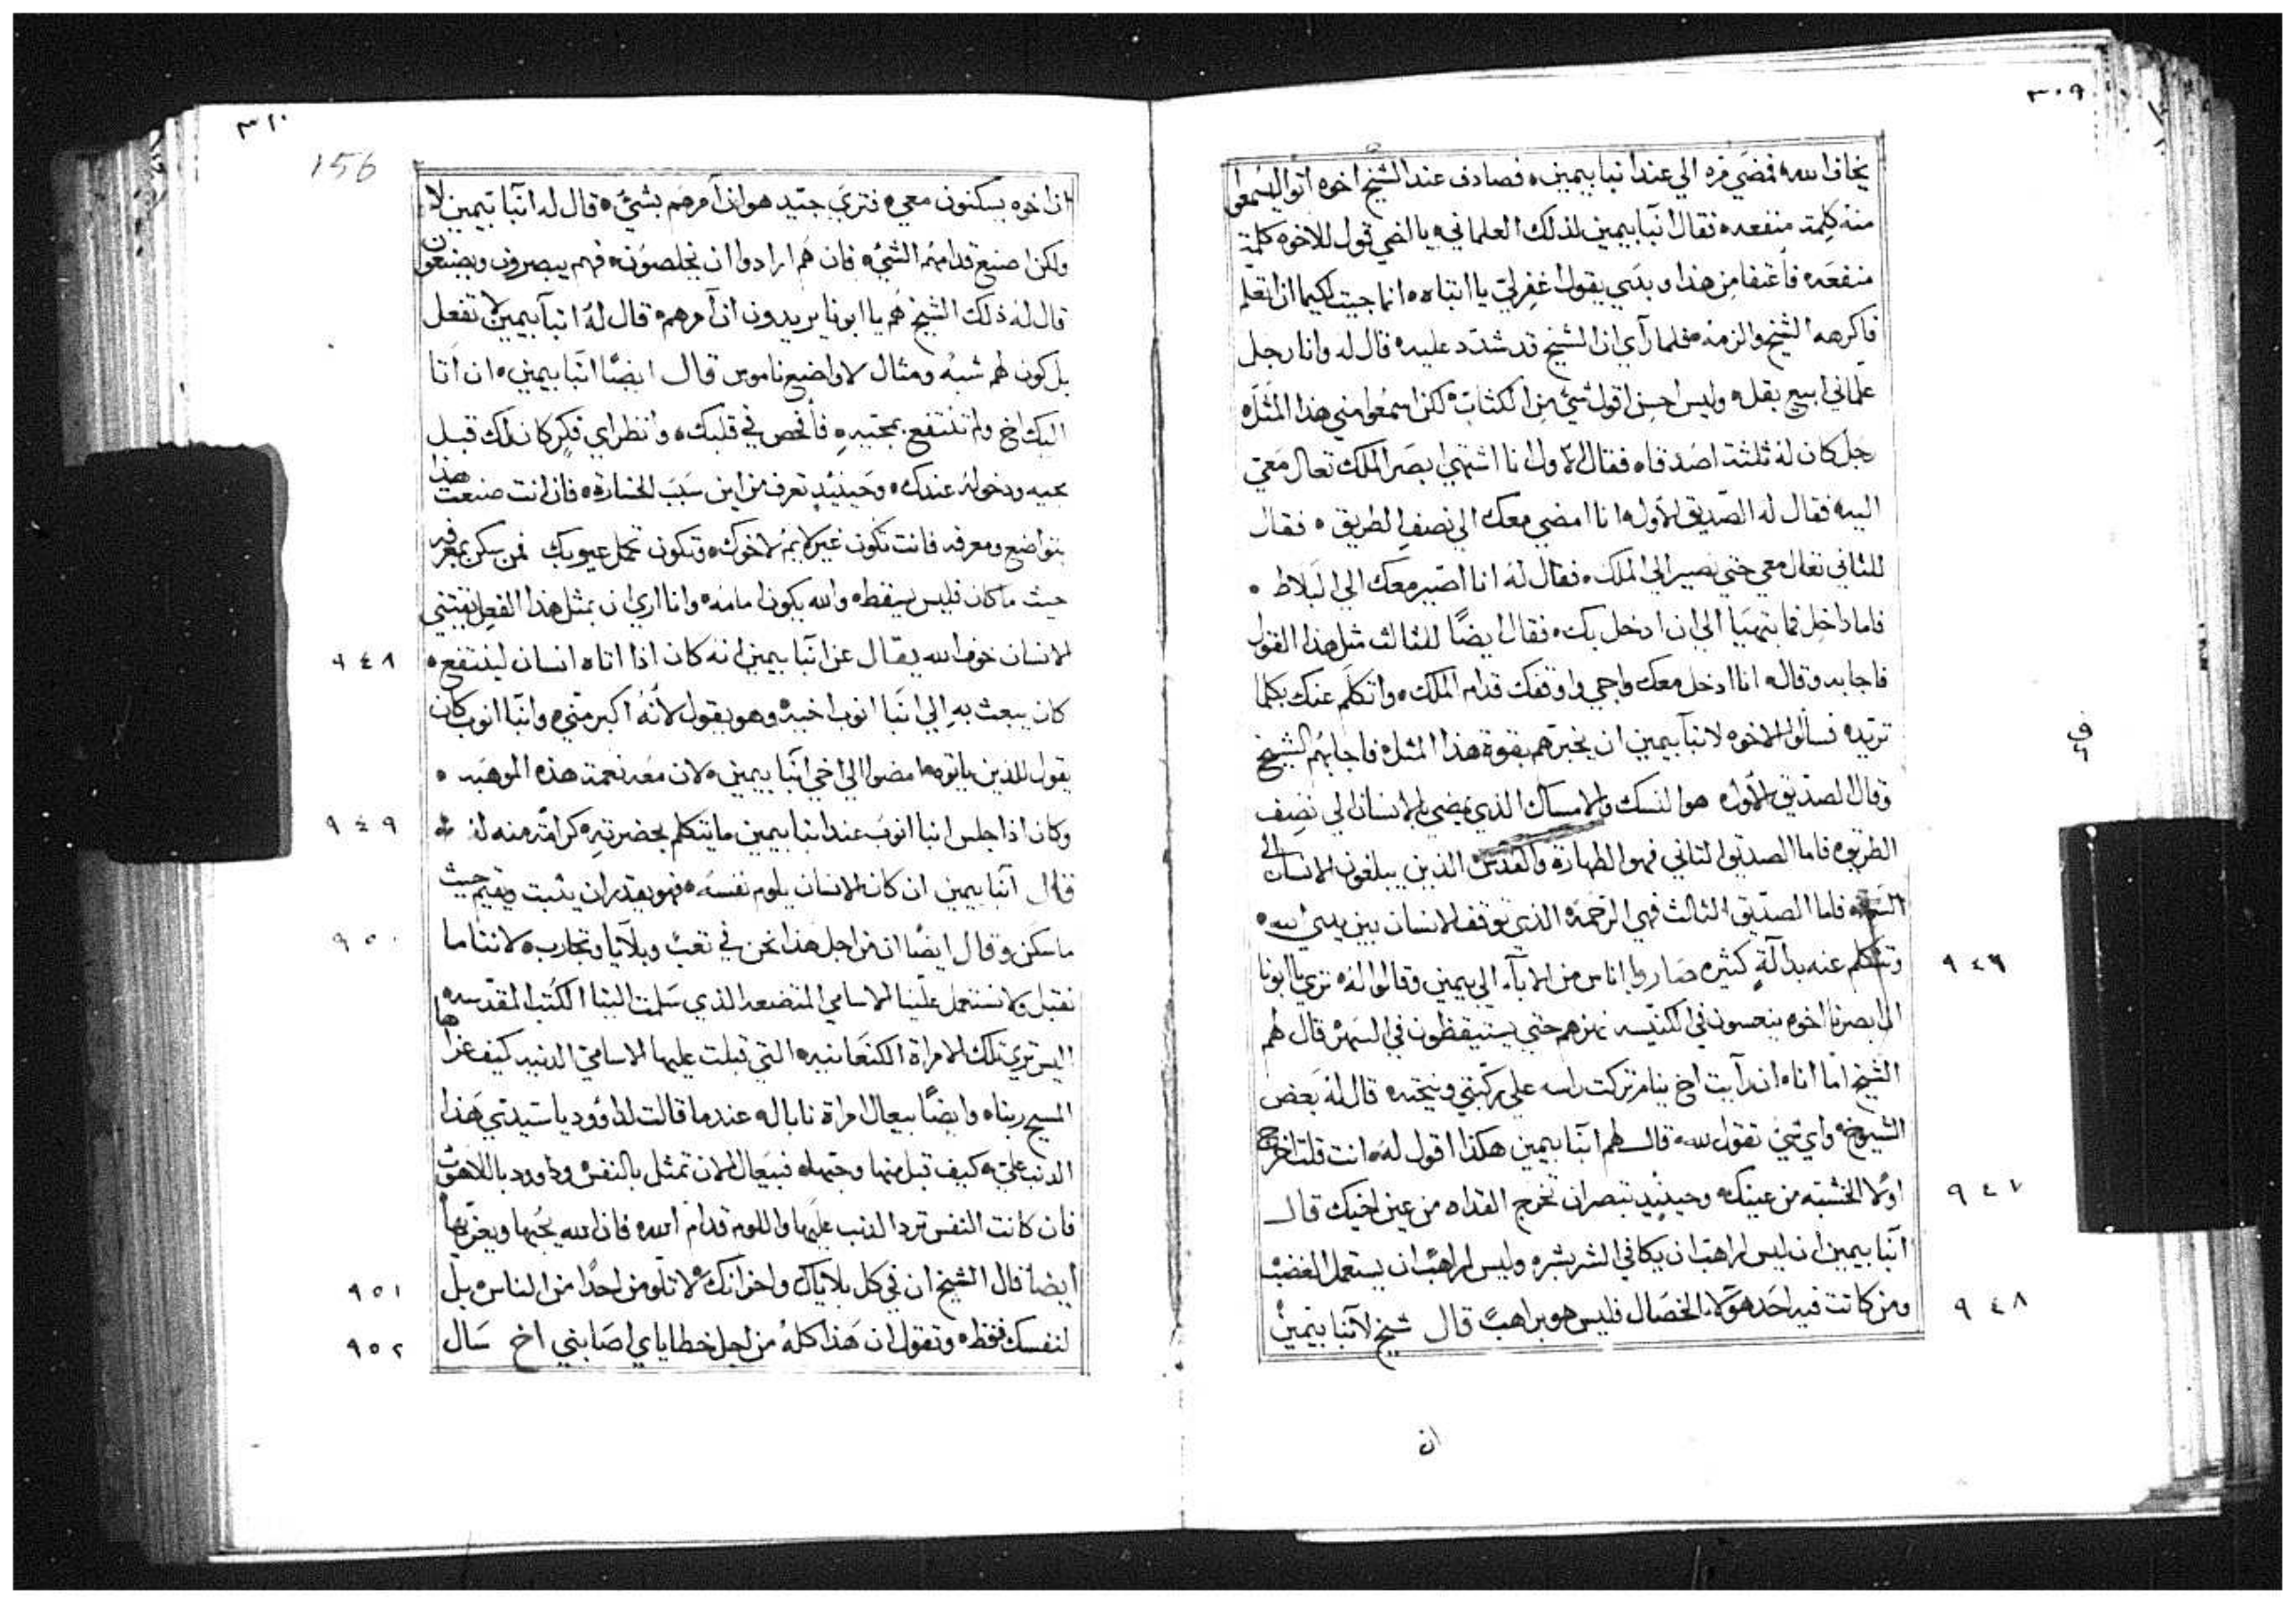 ٣٠٩
يخاف الله فمضي مره الي عند انبا بيمين فصادف عند الشيخ اخوه اتوا ليسمعوا
منه كلمة منفعه فقال أنبا بيمين لذلك العلماني يا اخي قول للاخوه كلمة
منفعه فاعتفا من هذا وبدي يقول اغفرلي يا ابتاه انما جيت لكيما اتعلم
فاكرهه الشيخ والزمه فلما رآي ان الشيخ قد شدد عليه قال له وانا رجل
علماني ابيع بقل وليس احسن اقول شي من الكتاب لكن اسمعوا مني هذا المثل
رجل كان له ثلثة اصدقاه فقال للاول انا اشتهي ابصر الملك تعال معي
اليه فقال له الصديق الأول انا امضي معك الي نصف الطريق فقال
للثاني تعال معي حتي نصير الي الملك فقال له انا اصير معك الي البلاط
فاما داخل فما يتهيا الي ان ادخل بك فقال ايضًا للثالث مثل هذا القول
فاجابه وقال انا ادخل معك واجي واوقفك قدام الملك واتكلم عنك بكلما
تريد فسالوا الاخوه لانبا بيمين ان يخبرهم بقوة هذا المثل فاجابهم الشيخ
وقال الصديق الأول هو النسك والامساك الذي يمضي بالانسان الي نصف
الطريق فاما الصديق الثاني فهو الطهاره والقدس الذين يبلغون الانسان الي
السما فاما الصديق الثالث فهي الرحمة الذي توقف الانسان بين يدي الله
وتتكلم عنه بدالةٍ كثيره صاروا اناس من الابآء الي بيمين وقالوا له تري يا ابونا
٩٤٦
ان ابصرنا اخوه ينعسون في الكنيسه نهزهم حتي يستيقظون في السهر قال لهم
الشيخ اما انا ان رآيت اخ ينام تركت راسه علي ركبتي ونيحته قال له بعض
الشيوخ واي شي تقول لله قال لهم انبا بيمين هكذا اقول له انت قلت اخرج
اولًا الخشبه من عينك وحينيدٍ تبصر ان تخرج القداه من عين اخيك قال
٩٤٧
آنبا بيمين ان ليس براهب ان يكافي الشر بشر وليس براهب ان يستعمل الغضب
ومن كانت فيه احد هؤلاء الخصال فليس هو براهب قال شيخ لآنبا بيمين
٩٤٨
ان
٣١٠
156
ان اخوه يسكنون معي فتري جيد هو ان آمرهم بشيء قال له انبا بيمين لا
ولكن اصنع قدامهم الشيء فان هم ارادوا ان يخلصون فهم يبصرون ويصنعون
قال له ذلك الشيخ هم يا ابونا يريدون ان آمرهم قال له انبا بيمين لا تفعل
بل كون لهم شبه ومثال لا واضع ناموس قال ايضًا انبا بيمين ان اتا
اليك اخ ولم تنتفع بمجيه فأفحص في قلبك وانظر اي فكر كان لك قبل
مجيه ودخوله عندك وحينيدٍ تعرف من اين سبب الخسارة فان انت صنعت هذا
بتواضع ومعرفه فانت تكون غير لايم لاخوك وتكون تحمل عيوبك فمن سكن بمعرفه
حيث ما كان فليس يسقط والله يكون امامه وانا اري ان بمثل هذا الفعل يقتني
الانسان خوف الله يقال عن انبا بيمين انه كان اذا اتاه انسان لينتفع
٩٤٨
كان يبعث به الي انبا انوب اخيه وهو يقول لأنه اكبر مني وانبا انوب كان
يقول للذين ياتوه امضوا الي اخي انبا بيمين لان معه نعمة هذه الموهبه
وكان اذا جلس انبا انوب عند انبا بيمين ما يتكلم بحضرته كرامة منه له
٩٤٩
قال انبا بيمين ان كان الانسان يلوم نفسه فهو يقدر ان يثبت ويقيم حيث
ما سكن وقال ايضًا ان من اجل هذا نحن في تعب وبلايا وتجارب لاننا ما
٩٥٠
نقبل ولا نستعمل علينا الاسامي المتضعه الذي سلمت الينا الكتب المقدسه
اليس تري تلك الامراة الكنعانيه التي قبلت عليها الاسامي الدنيه كيف عزاها
المسيح ربنا وايضًا بيعال امراة نابال عندما قالت لداوود يا سيدي هذا
الدنب علي كيف قبل منها وحبها فبيعال الان تمثل بالنفس وداوود باللاهوت
فان كانت النفس ترد الدنب عليها واللوم قدام الله فان الله يحبها ويعزيها
أيضا قال الشيخ ان في كل بلاياك واحزانك لا تلومن احدًا من الناس بل
٩٥١
لنفسك فقط وتقول ان هذا كله من اجل خطاياي اصابني اخ سال
٩٥٢